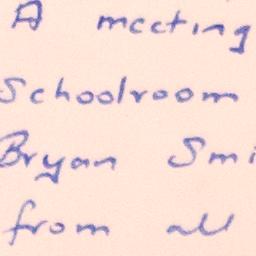 A meeting
Schoolroom
Bryan Smi
from all